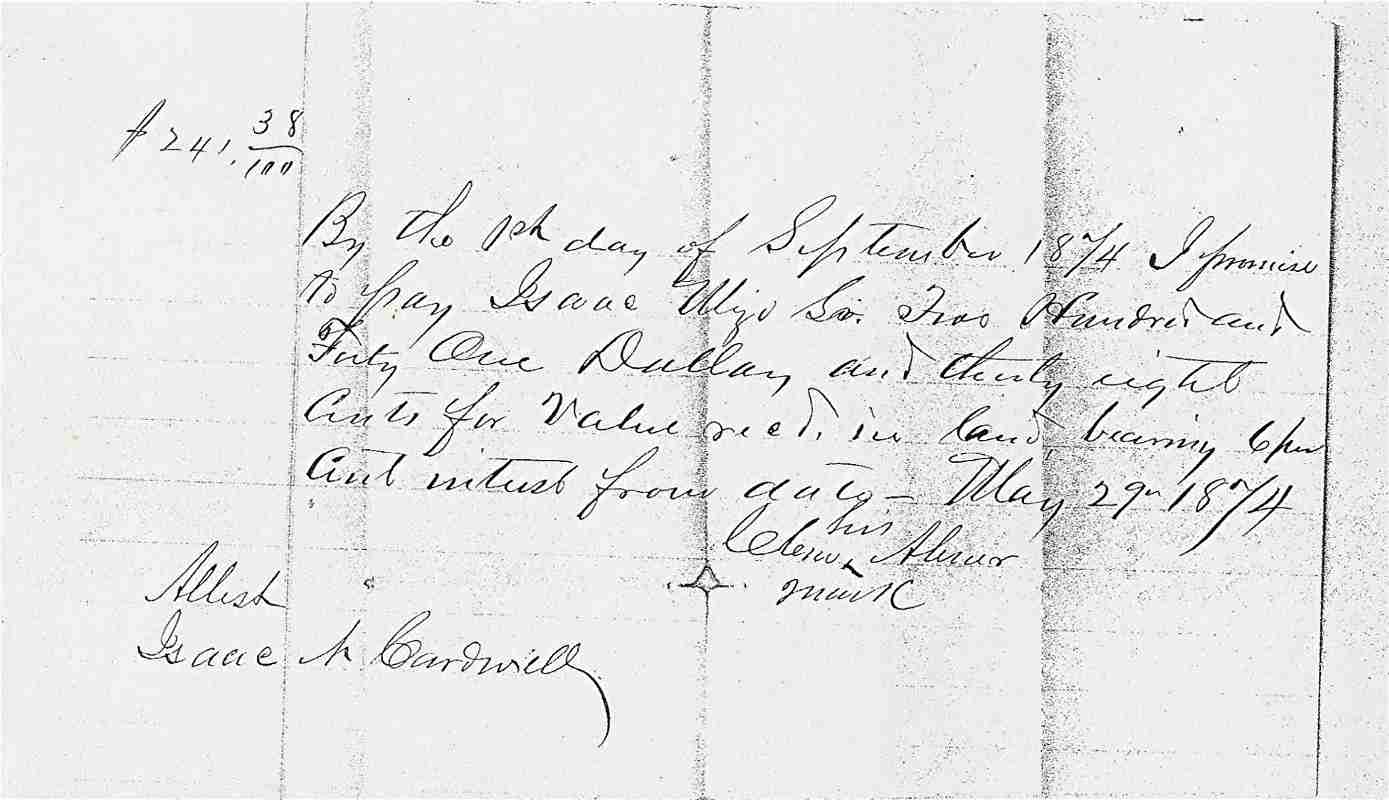 $241. 38/100
By the 1st day of September 1874 I promise
to pay Isaac Mize Sr. Two Hundred and
Forty One Dollars and thirty eight
Cents for Value recd. in land, bearing 6 per
Cent intrest from date – May 29th 1874
his
Abner
mark
Attest
Isaac N Cardwell